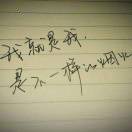 我就是我,
是不一样的烟火